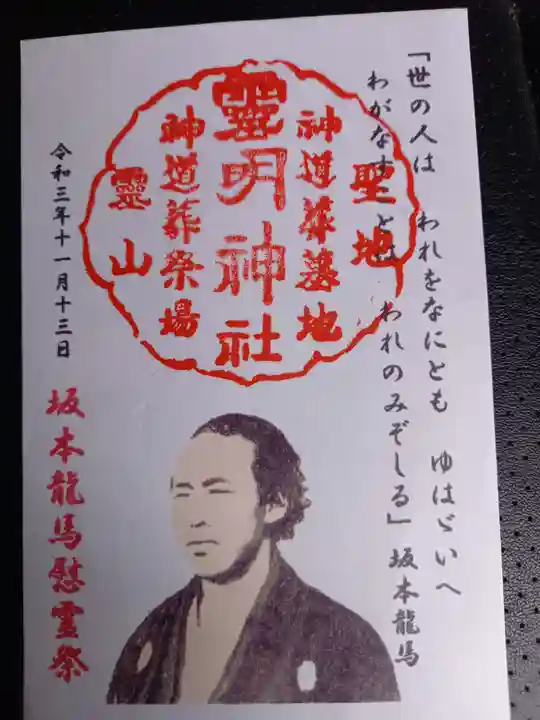 「世の人は　われをなにとも　ゆはゞいへ
わがなすことは　われのみぞしる」坂本龍馬
聖地
神道葬墓地
霊明神社
神道葬祭場
靈山
令和三年十一月十三日
坂本龍馬慰霊祭